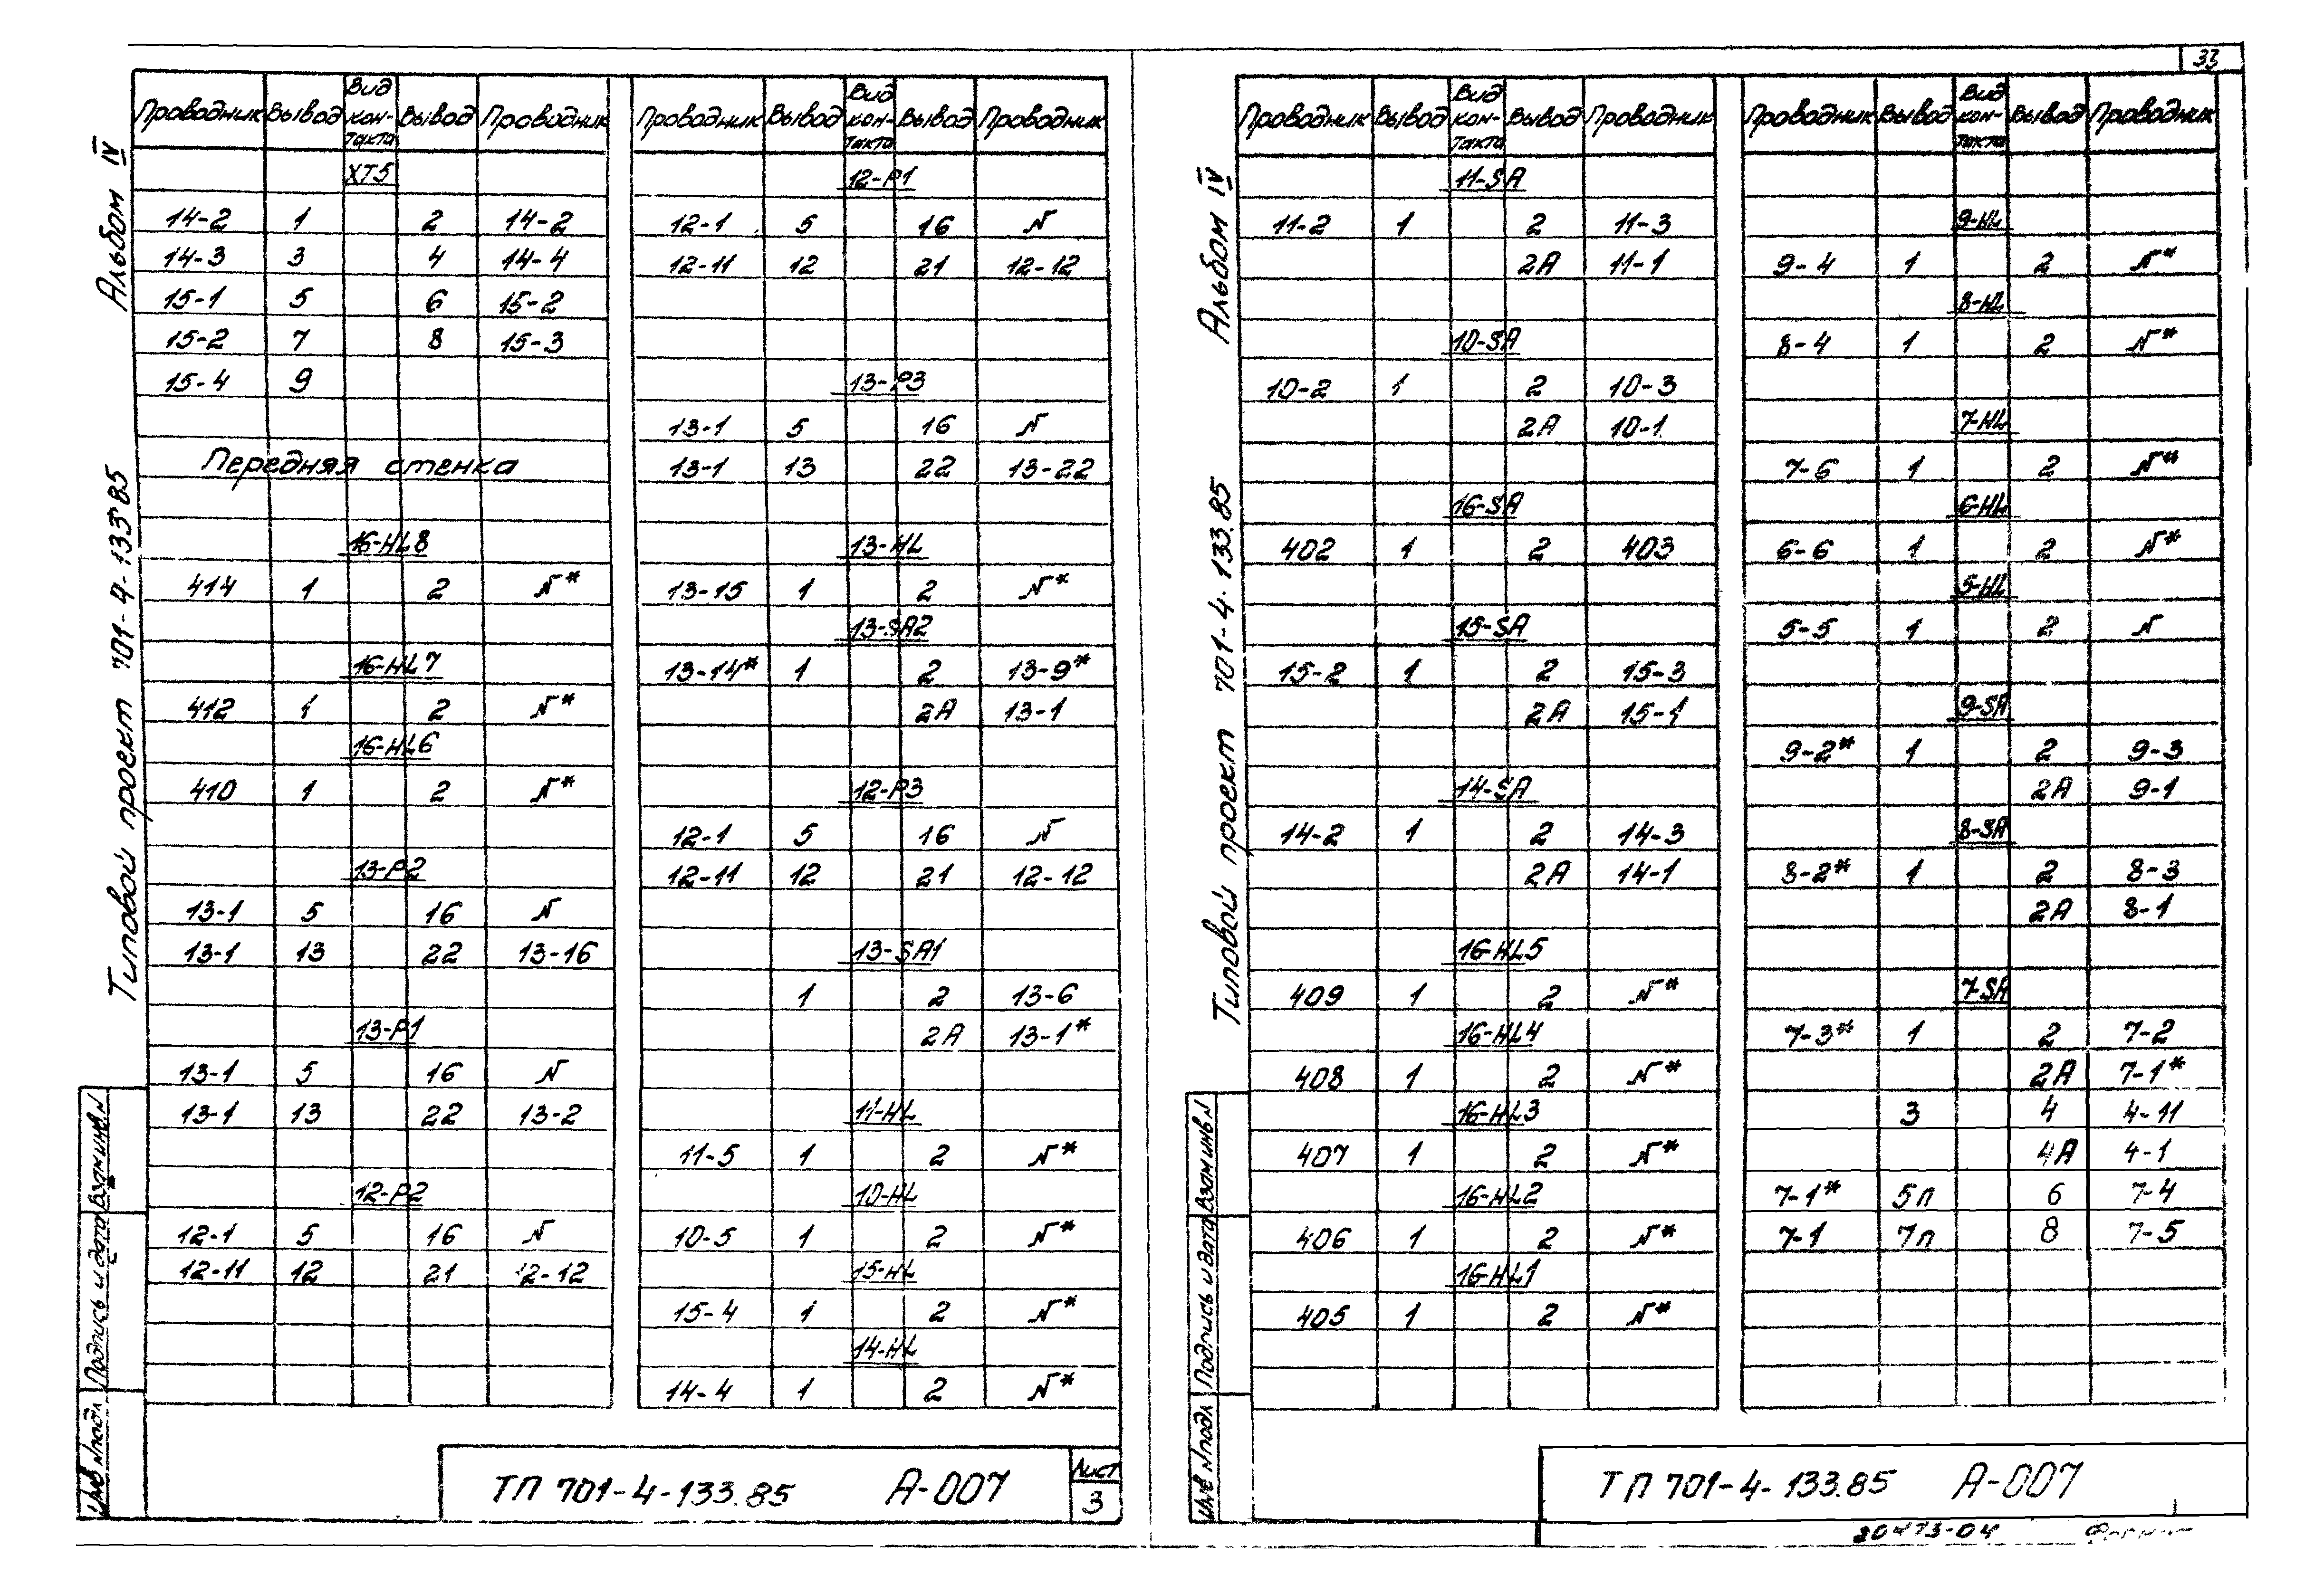 33
Альбом IV
Типовой проект 701-4-133.85
Проводник Вывод Вид контакта Вывод Проводник
XT5
14-2 1 2 14-2
14-3 3 4 14-4
15-1 5 6 15-2
15-2 7 8 15-3
15-4 9
Передняя стенка
16-HL8
414 1 2 N*
16-HL7
412 1 2 N*
16-HL6
410 1 2 N*
13-P2
13-1 5 16 N
13-1 13 22 13-16
13-P1
13-1 5 16 N
13-1 13 22 13-2
12-P2
12-1 5 16 N
12-11 12 21 12-12
Проводник Вывод Вид контакта Вывод Проводник
12-P1
12-1 5 16 N
12-11 12 21 12-12
13-P3
13-1 5 16 N
13-1 13 22 13-22
13-HL
13-15 1 2 N*
13-SA2
13-14* 1 2 13-9*
2A 13-1
12-P3
12-1 5 16 N
12-11 12 21 12-12
13-SA1
1 2 13-6
2A 13-1*
11-HL
11-5 1 2 N*
10-HL
10-5 1 2 N*
15-HL
15-4 1 2 N*
14-HL
14-4 1 2 N*
Инв N подл Подпись и дата Взам инв N
ТП 701-4-133.85 А-007
Лист
3
Альбом IV
Типовой проект 701-4-133.85
Проводник Вывод Вид контакта Вывод Проводник
11-SA
11-2 1 2 11-3
2A 11-1
10-SA
10-2 1 2 10-3
2A 10-1
16-SA
402 1 2 403
15-SA
15-2 1 2 15-3
2A 15-1
14-SA
14-2 1 2 14-3
2A 14-1
16-HL5
409 1 2 N*
16-HL4
408 1 2 N*
16-HL3
407 1 2 N*
16-HL2
406 1 2 N*
16-HL1
405 1 2 N*
Проводник Вывод Вид контакта Вывод Проводник
9-HL
9-4 1 2 N*
8-HL
8-4 1 2 N*
7-HL
7-6 1 2 N*
6-HL
6-6 1 2 N*
5-HL
5-5 1 2 N
9-SA
9-2* 1 2 9-3
2A 9-1
8-SA
8-2* 1 2 8-3
2A 8-1
7-SA
7-3* 1 2 7-2
2A 7-1*
3 4 4-11
4A 4-1
7-1* 5п 6 7-4
7-1 7п 8 7-5
Инв N подл Подпись и дата Взам инв N
ТП 701-4-133.85 А-007